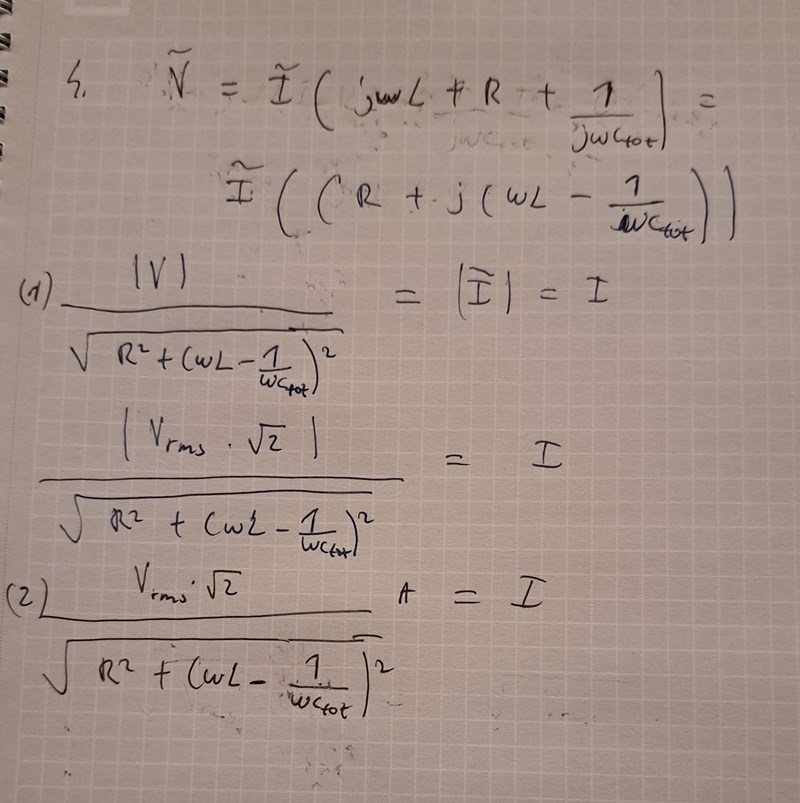 4. Ṽ = Ĩ ( jωL + R + 1/(jωC_tot) ) =
Ĩ ( ( R + j ( ωL − 1/(ωC_tot) ) )
(1) |V| / √( R² + (ωL − 1/(ωC_tot))² ) = |Ĩ| = I
| V_rms · √2 | / √( R² + (ωL − 1/(ωC_tot))² ) = I
(2) V_rms · √2 / √( R² + (ωL − 1/(ωC_tot))² ) A = I